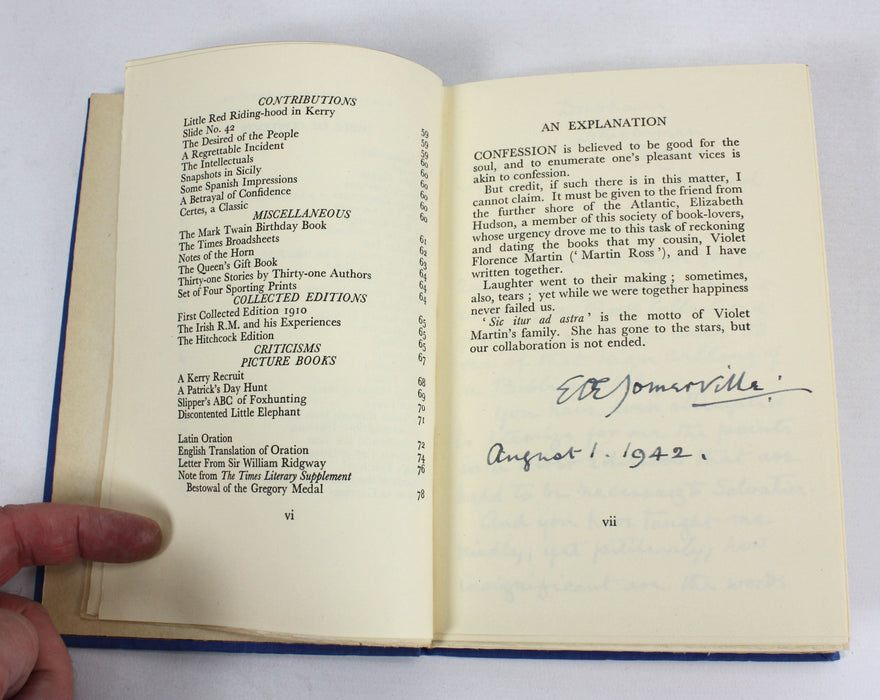 CONTRIBUTIONS
Little Red Riding-hood in Kerry 59
Slide No. 42 59
The Desired of the People 59
A Regrettable Incident 60
The Intellectuals 60
Snapshots in Sicily 60
Some Spanish Impressions 60
A Betrayal of Confidence 60
Certes, a Classic 60
MISCELLANEOUS
The Mark Twain Birthday Book 61
The Times Broadsheets 62
Notes of the Horn 63
The Queen's Gift Book 64
Thirty-one Stories by Thirty-one Authors 64
Set of Four Sporting Prints 64
COLLECTED EDITIONS
First Collected Edition 1910 65
The Irish R.M. and his Experiences 65
The Hitchcock Edition 65
CRITICISMS 67
PICTURE BOOKS
A Kerry Recruit 68
A Patrick's Day Hunt 69
Slipper's ABC of Foxhunting 70
Discontented Little Elephant 71
Latin Oration 72
English Translation of Oration 74
Letter From Sir William Ridgway 76
Note from The Times Literary Supplement
Bestowal of the Gregory Medal 78
vi
AN EXPLANATION
CONFESSION is believed to be good for the
soul, and to enumerate one's pleasant vices is
akin to confession.
But credit, if such there is in this matter, I
cannot claim. It must be given to the friend from
the further shore of the Atlantic, Elizabeth
Hudson, a member of this society of book-lovers,
whose urgency drove me to this task of reckoning
and dating the books that my cousin, Violet
Florence Martin ('Martin Ross'), and I have
written together.
Laughter went to their making ; sometimes,
also, tears ; yet while we were together happiness
never failed us.
'Sic itur ad astra' is the motto of Violet
Martin's family. She has gone to the stars, but
our collaboration is not ended.
E Œ Somerville.
August 1. 1942.
vii